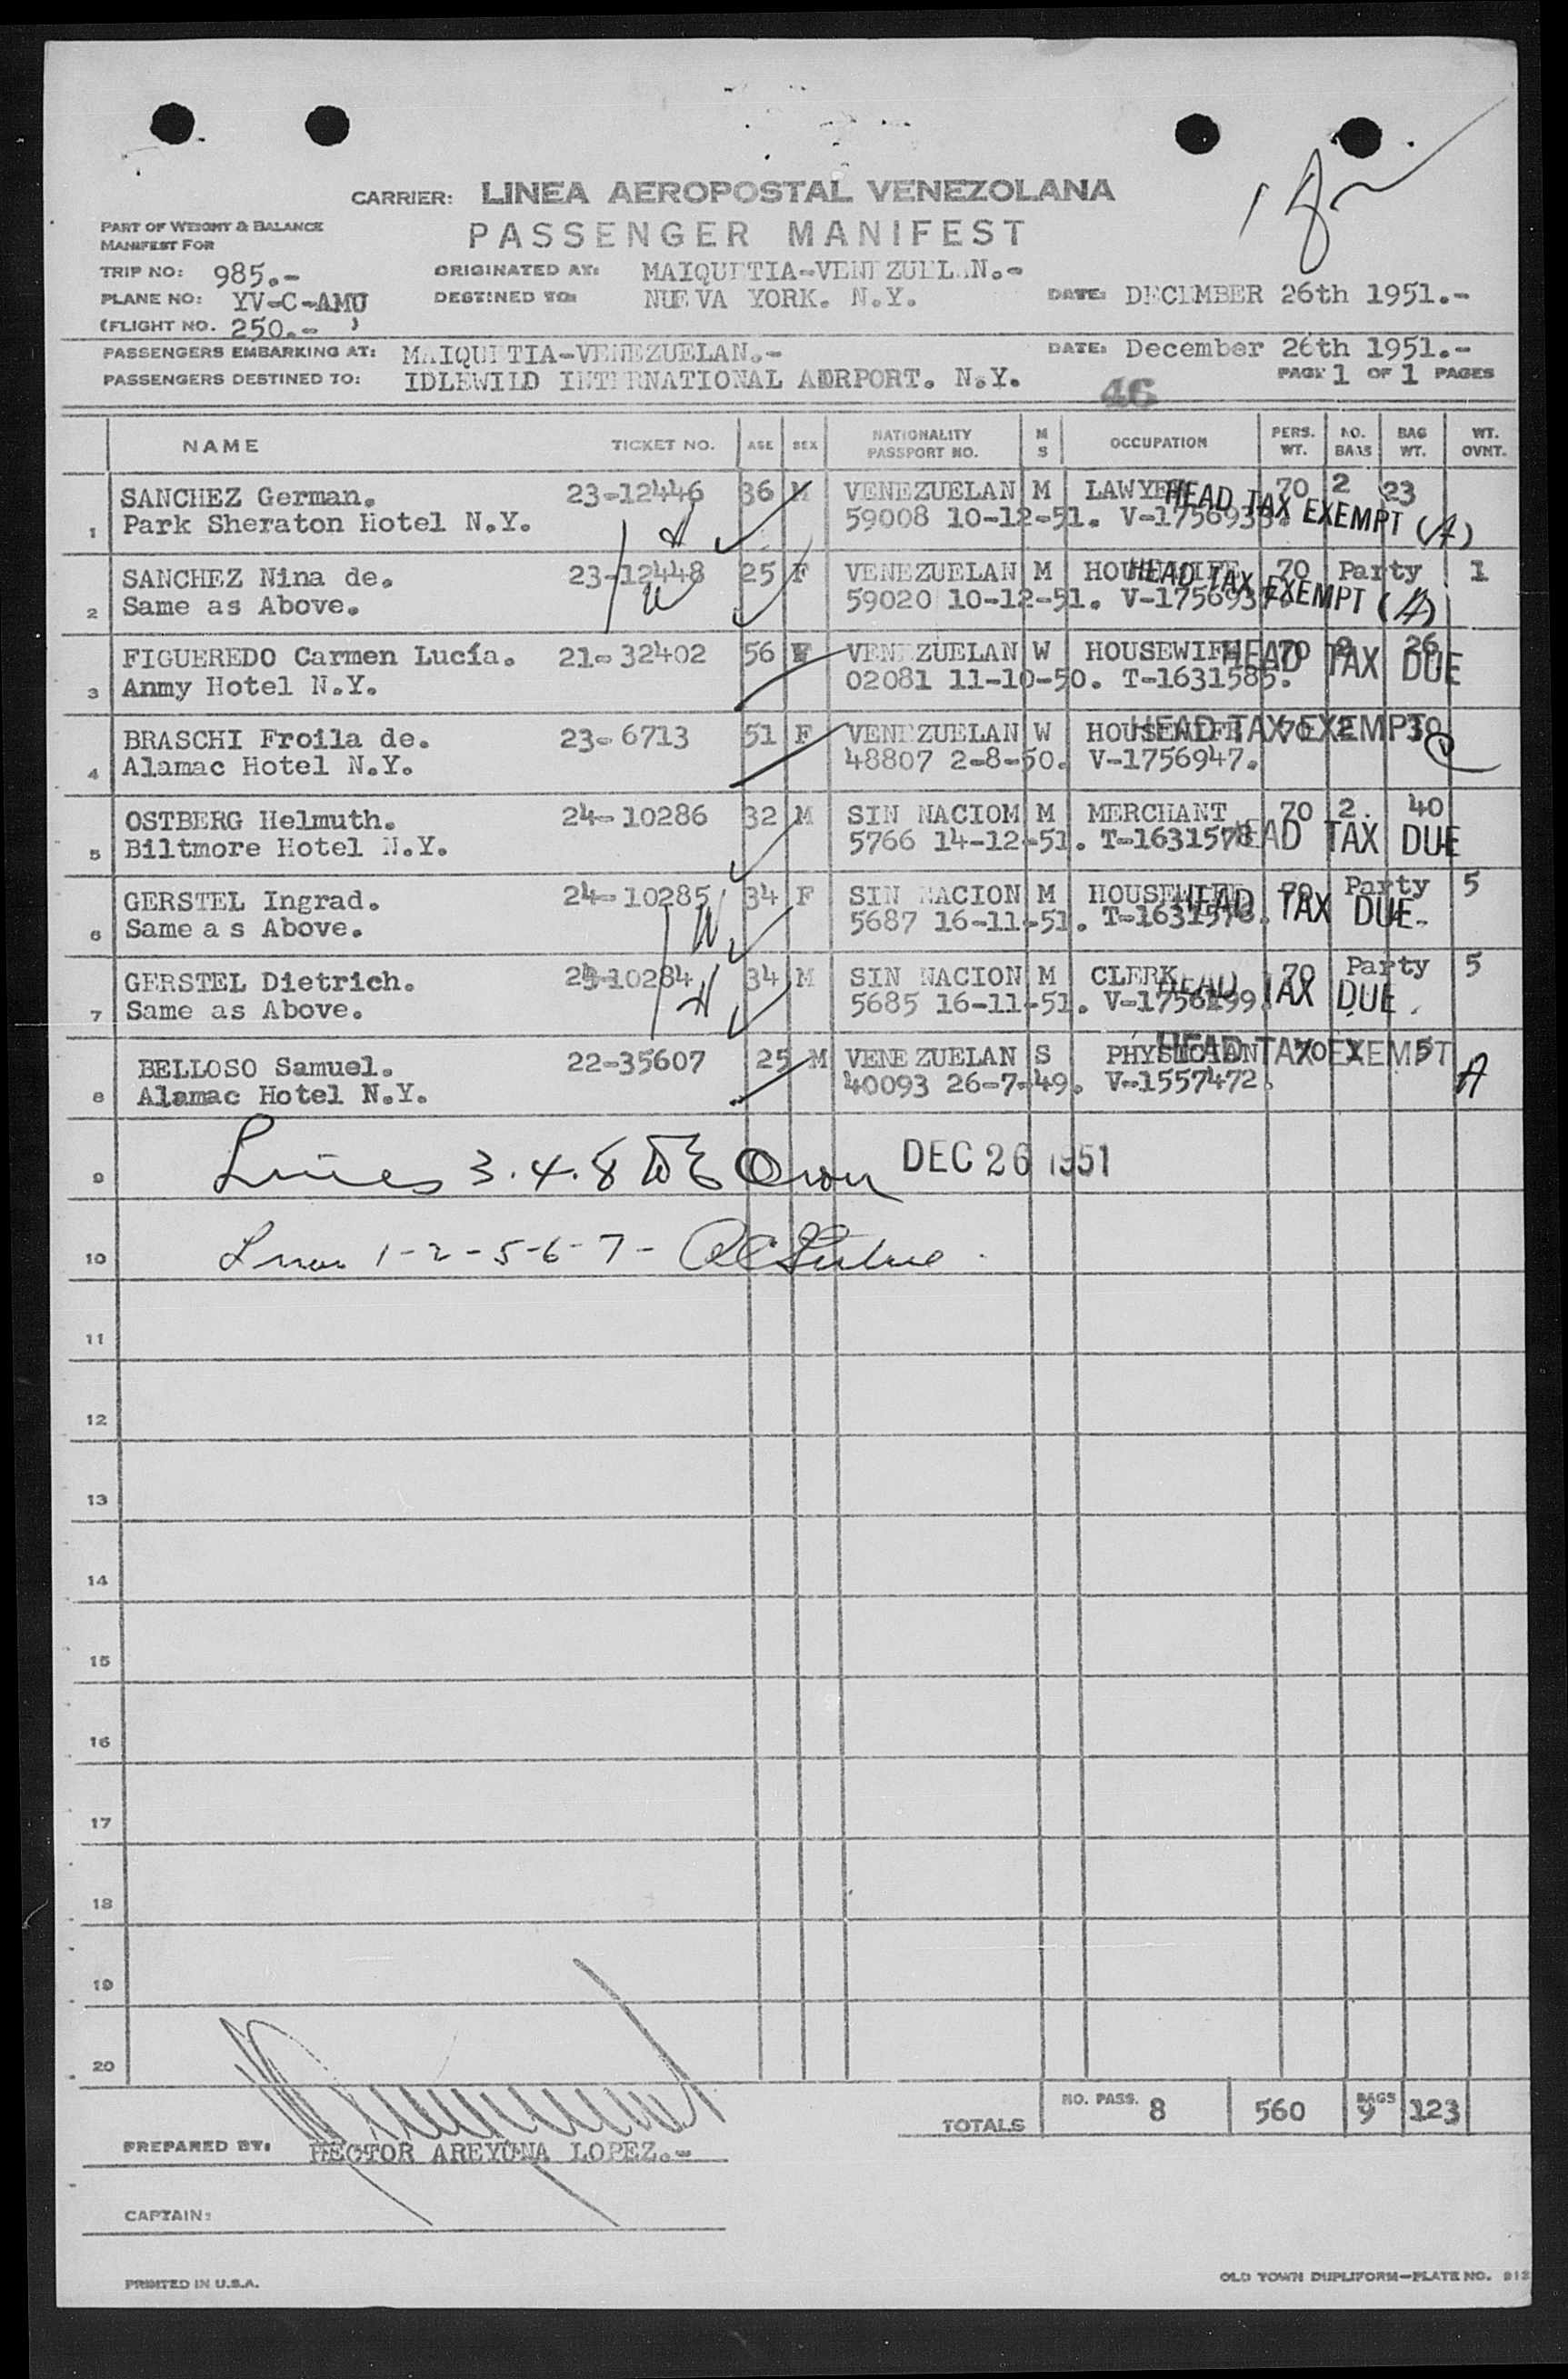 CARRIER: LINEA AEROPOSTAL VENEZOLANA
PART OF WEIGHT & BALANCE
MANIFEST FOR
PASSENGER MANIFEST
TRIP NO: 985.-
ORIGINATED AT: MAIQUETIA-VENEZUELAN.-
PLANE NO: YV-C-AMU
DESTINED TO: NUEVA YORK. N.Y.
DATE: DECEMBER 26th 1951.-
(FLIGHT NO. 250.- )
PASSENGERS EMBARKING AT: MAIQUETIA-VENEZUELAN.-
DATE: December 26th 1951.-
PASSENGERS DESTINED TO: IDLEWILD INTERNATIONAL AIRPORT. N.Y.
46
PAGE 1 OF 1 PAGES
NAME TICKET NO. AGE SEX NATIONALITY PASSPORT NO. M S OCCUPATION PERS. WT. NO. BAGS BAG WT. WT. OVNT.
SANCHEZ German. 23-12446 36 M VENEZUELAN M LAWYER 70 2 23
1 Park Sheraton Hotel N.Y. 59008 10-12-51. V-1756938. HEAD TAX EXEMPT (A)
SANCHEZ Nina de. 23-12448 25 F VENEZUELAN M HOUSEWIFE 70 Party 1
2 Same as Above. W 59020 10-12-51. V-1756937. HEAD TAX EXEMPT (A)
FIGUEREDO Carmen Lucía. 21-32402 56 F VENEZUELAN W HOUSEWIFE 70 2 26
3 Anmy Hotel N.Y. 02081 11-10-50. T-1631585. HEAD TAX DUE
BRASCHI Froila de. 23-6713 51 F VENEZUELAN W HOUSEWIFE 70 2 30 HEAD TAX EXEMPT
4 Alamac Hotel N.Y. 48807 2-8-50. V-1756947.
OSTBERG Helmuth. 24-10286 32 M SIN NACIOM M MERCHANT 70 2. 40
5 Biltmore Hotel N.Y. 5766 14-12-51. T-1631578 HEAD TAX DUE
GERSTEL Ingrad. 24-10285 34 F SIN NACION M HOUSEWIFE 70 Party 5
6 Same a s Above. W 5687 16-11-51. T-1631576. HEAD TAX DUE
GERSTEL Dietrich. 24-10284 34 M SIN NACION M CLERK 70 Party 5
7 Same as Above. H 5685 16-11-51. V-1756299. HEAD TAX DUE
BELLOSO Samuel. 22-35607 25 M VENEZUELAN S PHYSICIAN 70 1 5 HEAD TAX EXEMPT
8 Alamac Hotel N.Y. 40093 26-7-49. V-1557472. A
9 Lines 3.4.8 DEC 26 1951
10 Lines 1-2-5-6-7-
11
12
13
14
15
16
17
18
19
20
TOTALS NO. PASS. 8 560 BAGS 9 123
PREPARED BY: HECTOR AREYUNA LOPEZ.-
CAPTAIN:
PRINTED IN U.S.A.
OLD TOWN DUPLIFORM-PLATE NO.